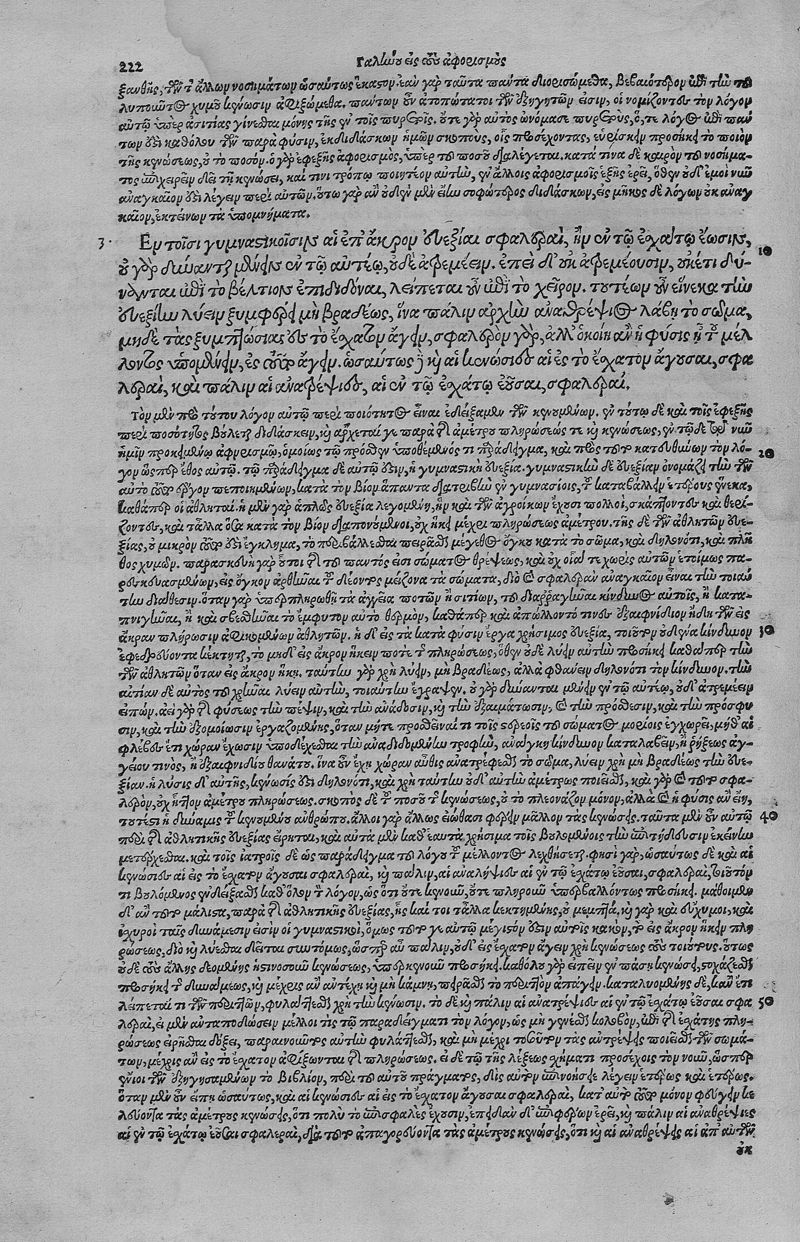 222 Γαληνοῦ εἰς τοὺς ἀφορισμοὺς
ξανθῆς, τῶν τ' ἄλλων νοσημάτων ὡσαύτως ἕκαστον. ἐὰν γὰρ ταῦτα πάντα διορισώμεθα, βεβαιότερον ἐπὶ τὴν τοῦ
λυποῦντος χυμοῦ κένωσιν ἀφιξώμεθα. πάντων οὖν ἀτοπώτατοι τῶν ἐξηγητῶν εἰσιν, οἱ νομίζοντες τὸν λόγον
αὐτῷ ὑπὲρ ἀσιτίας γίνεσθαι μόνης τῆς ἐν τοῖς πυρετοῖς. οὔτε γὰρ αὐτὸς ὠνόμασε πυρετοὺς, ὅ, τε λόγος ἐπὶ πάν
των ἐστὶ καθόλου τῶν παρὰ φύσιν, ἐκδιδάσκων ἡμῶν σκοποὺς, οἷς προσέχοντας, εὑρίσκειν προσήκει τὸ ποιὸν
τῆς κενώσεως, οὐ τὸ ποσόν. ὁ γὰρ ἐφεξῆς ἀφορισμὸς, ὑπὲρ τοῦ ποσοῦ διαλέγεται. κατὰ τίνα δὲ καιρὸν τοῦ νοσήμα-
τος ἐπιχειρεῖν δεῖ τῇ κενώσει, καὶ τίνι τρόπῳ ποιητέον αὐτὴν, ἐν ἄλλοις ἀφορισμοῖς ἑξῆς ἐρεῖ, ὅθεν οὐδ' ἐμοὶ νῦν
ἀναγκαῖον ἐστι λέγειν περὶ αὐτῶν. οὕτω γὰρ ἂν οὐδὲν μὲν εἴην σοφώτερος διδάσκων, εἰς μῆκος δὲ λόγων οὐκ ἀναγ
καῖον, ἐκτείνων τὰ ὑπομνήματα.
3. Ἐν τοῖσι γυμναστικοῖσιν αἱ ἐπ' ἄκρον εὐεξίαι σφαλεραὶ, ἢν ἐν τῷ ἐσχάτῳ ἔωσιν,
οὐ γὰρ δύνανται μένειν ἐν τῷ αὐτέῳ, οὐδὲ ἀτρεμέειν. ἐπεὶ δ' οὐκ ἀτρεμέουσιν, οὐκέτι δύ- 10
νανται ἐπὶ τὸ βέλτιον ἐπιδιδόναι, λείπεται οὖν ἐπὶ τὸ χεῖρον. τουτέων οὖν εἵνεκα τὴν
εὐεξίην λύειν ξυμφέρει μὴ βραδέως, ἵνα πάλιν ἀρχὴν ἀναθρέψιος λάβῃ τὸ σῶμα,
μηδὲ τὰς ξυμπτώσιας ἐς τὸ ἔσχατον ἄγειν, σφαλερὸν γὰρ, ἀλλ' ὁκοίη ἂν ἡ φύσις ᾖ τοῦ μέλ
λοντος ὑπομένειν, ἐς τοῦτο ἄγειν. ὡσαύτως δὲ καὶ αἱ κενώσιες αἱ ἐς τὸ ἔσχατον ἄγουσαι, σφα
λεραὶ, καὶ πάλιν αἱ ἀναθρέψιες, αἱ ἐν τῷ ἐσχάτῳ ἐοῦσαι, σφαλεραί.
Τὸν μὲν πρὸ τούτου λόγον αὐτῷ περὶ ποιότητος εἶναι ἐδείξαμεν τῶν κενουμένων. ἐν τούτῳ δὲ καὶ τοῖς ἐφεξῆς
περὶ ποσότητος βούλεται διδάσκειν, καὶ ἄρχεταί γε παρὰ τῆς ἀμέτρου πληρώσεώς τε καὶ κενώσεως, ἐν τῷδε τῷ νῦν
ἡμῖν προκειμένῳ ἀφορισμῷ, ὁμοίως τῷ πρόσθεν ὑποθέμενός τι παράδειγμα, καὶ πρὸς τοῦτο κατευθύνων τὸν λό- 20
γον ὥσπερ ἔθος αὐτῷ. τῷ παράδειγμα δὲ αὐτῷ ἐστιν, ἡ γυμναστικὴ εὐεξία. γυμναστικὴν δὲ εὐεξίαν ὀνομάζει τὴν τῶν
αὐτὸ τοῦτο ἔργον πεποιημένων, κατὰ τὸν βίον ἅπαντα διατρίβειν ἐν γυμνασίοις, τοῦ καταβάλλειν ἑτέρους ἕνεκα,
καθάπερ οἱ ἀθληταί. ἡ μὲν γὰρ ἁπλῶς εὐεξία λεγομένη, ἣν καὶ τῶν ἀγροίκων ἔχουσι πολλοὶ, σκάπτοντες καὶ θερί-
ζοντες, καὶ τἆλλα ὅσα κατὰ τὸν βίον διαπονούμενοι, οὐχ ἥκει μέχρι πληρώσεως ἀμέτρου. τῆς δὲ τῶν ἀθλητῶν εὐε-
ξίας, οὐ μικρὸν τοῦτό ἐστι ἔγκλημα, τὸ περιβάλλεσθαι πειρᾶσθαι μέγεθος ὄγκου κατὰ τὸ σῶμα, καὶ δηλονότι, καὶ πλῆ
θος χυμῶν. παρασκευὴ γὰρ οὗτοι τῆς τοῦ παντός εἰσι σώματος θρέψεως, καὶ οὐχ οἷόν τε χωρὶς αὐτῶν ἑτοίμως πα-
ρεσκευασμένων, εἰς ὄγκον ἀρθῆναι τοῦ δέοντος μείζονα τὰ σώματα, διὸ καὶ σφαλερὰν ἀναγκαῖον εἶναι τὴν τοιαύ
την διάθεσιν. ὅταν γὰρ ὑπερπληρωθῇ τὰ ἀγγεῖα ποτῶν ἢ σιτίων, τοῦ διαρραγῆναι κίνδυνος αὐτοῖς, ἢ κατα-
πνιγῆναι, ἢ καὶ σβεσθῆναι τὸ ἔμφυτον αὐτὸ θερμὸν, καθάπερ καὶ ἀπώλοντό τινες ἐξαιφνίδιον ἤδη τῶν εἰς
ἄκραν πλήρωσιν ἀφικομένων ἀθλητῶν. ἡ δ' εἰς τὰ κατὰ φύσιν ἔργα χρήσιμος εὐεξία, τοιοῦτον οὐδένα κίνδυνον 30
ἐφεδρεύοντα κέκτηται, τὸ μηδ' εἰς ἄκρον ἥκειν ποτὲ τοῦ πληρώσεως, ὅθεν οὐδὲ λύειν αὐτὴν προσήκει καθάπερ τὴν
τῶν ἀθλητῶν ὅταν εἰς ἄκρον ἥκῃ. ταύτην γὰρ χρὴ λύειν, μὴ βραδέως, ἀλλὰ φθάνειν δηλονότι τὸν κίνδυνον. τὴν
αἰτίαν δὲ αὐτὸς τοῦ χρῆναι λύειν αὐτὴν, τοιαύτην ἔγραψεν. οὐ γὰρ δύνανται μένειν ἐν τῷ αὐτέῳ, οὐδ' ἀτρεμέειν
εἰπών. ἀεὶ γὰρ τῆς φύσεως τὴν πέψιν, καὶ τὴν ἀνάδοσιν, καὶ τὴν ἐξαιμάτωσιν, καὶ τὴν πρόσθεσιν, καὶ τὴν πρόσφυ
σιν, καὶ τὴν ἐξομοίωσιν ἐργαζομένης, ὅταν μήτε προσθεῖναί τι τοῖς στερεοῖς τοῦ σώματος μορίοις ἐγχωρεῖ, μήθ' αἱ
φλέβες ἔτι χώραν ἔχωσιν ὑποδέχεσθαι τὴν ἀναδιδομένην τροφὴν, ἀνάγκη κίνδυνον καταλαβεῖν, ἢ ῥήξεως ἀγ-
γείου τινὸς, ἢ ἐξαιφνιδίου θανάτου. ἵνα οὖν ἔχῃ χώραν αὖθις ἀνατρέφεσθαι τὸ σῶμα, λύειν χρὴ μὴ βραδέως τὴν εὐε-
ξίαν. ἡ λύσις δ' αὐτῆς, κένωσίς ἐστι δηλονότι, καὶ χρὴ ταύτην οὐδ' αὐτὴν ἀμέτρως ποιεῖσθαι, καὶ γὰρ καὶ τοῦτο σφα-
λερὸν, οὐχ ἧττον ἀμέτρου πληρώσεως. σκοπὸς δὲ τοῦ ποσοῦ τῆς κενώσεως, οὐ τὸ πλεονάζον μόνον, ἀλλὰ καὶ ἡ φύσις ἂν εἴη,
τουτέστι ἡ δύναμις τοῦ κενουμένου ἀνθρώπου. ἄλλοι γὰρ ἄλλως εἰώθασι φέρειν μᾶλλον τὰς κενώσεις. ταῦτα μὲν οὖν αὐτῷ 40
περὶ τῆς ἀθλητικῆς εὐεξίας εἴρηται, καὶ αὐτὰ μὲν καθ' ἑαυτὰ χρήσιμα τοῖς βουλομένοις τὴν ἐπιτήδευσιν ἐκείνην
μετέρχεσθαι. καὶ τοῖς ἰατροῖς δὲ ὡς παράδειγμα τοῦ λόγου τοῦ μέλλοντος λεχθήσεται. φησὶ γὰρ, ὡσαύτως δὲ καὶ αἱ
κενώσιες αἱ εἰς τὸ ἔσχατον ἄγουσαι σφαλεραὶ, καὶ πάλιν, αἱ ἀναλήψιες αἱ ἐν τῷ ἐσχάτῳ ἐοῦσαι, σφαλεραὶ, τοιοῦτόν
τι βουλόμενος ἐνδείξασθαι καθ' ὅλον τὸν λόγον, ὡς ὅτι οὔτε κενοῦν, οὔτε πληροῦν ὑπερβαλλόντως προσήκει. μάθοιμεν
δ' ἂν τοῦτο μάλιστα, παρὰ τῆς ἀθλητικῆς εὐεξίας, ἧς καί τοι τἆλλα κεκτημένης, οὐ μεμπτά, καὶ γὰρ καὶ εὔχυμοι, καὶ
ἐχυροὶ ταῖς δυνάμεσίν εἰσιν οἱ γυμναστικοὶ, ὅμως τοῦτό γε αὐτῷ μέγιστόν ἐστιν αὐτοῖς κακὸν, τὸ εἰς ἄκρον ἥκειν πλη
ρώσεως, διὸ καὶ λύεσθαι δεῖται συντόμως, ὥσπερ αὖ πάλιν, οὐδ' εἰς ἔσχατον ἄγειν χρὴ κενώσεως τοὺς τοιούτους. οὕτως
οὐδὲ τοὺς ἄλλης δεομένης ἡστινοσοῦν κενώσεως, ὑπερκενοῦν προσήκει. καθόλου γὰρ εἰπεῖν ἐν πάσῃ κενώσει, στοχάζεσθαι
προσήκει τοῦ δυνάμεως, καὶ μέχρις ἂν ἀντέχῃ καὶ μὴ κάμνῃ, πειρᾶσθαι τὸ περιττὸν ἀπάγειν. καταλυομένης δὲ, κἂν ἔτι
λείπεταί τι τῶν περιττῶν, φυλάττεσθαι χρὴ τὴν κένωσιν. τὸ δὲ καὶ πάλιν αἱ ἀνατρέψιες αἱ ἐν τῷ ἐσχάτῳ ἐοῦσαι σφα 50
λεραὶ, εἰ μὲν ἀνταποδώσειν μέλλοι τις τῷ παραδείγματι τὸν λόγον, ὡς μὴ γενέσθαι κολοβὸν, ἐπὶ τῆς ἐσχάτης πλη-
ρώσεως εἰρῆσθαι δόξει, παραινοῦντος αὐτὴν φυλάττεσθαι, καὶ μὴ μέχρι τοσούτου τὰς ἀνατρέψεις ποιεῖσθαι τῶν σωμά-
των, μέχρις ἂν εἰς τὸ ἔσχατον ἀφίξωνται τῆς πληρώσεως. εἰ δὲ τῷ τῆς λέξεως σχήματι προσέχοις τὸν νοῦν, ὥσπερ
ἔνιοι τῶν ἐξηγησαμένων τὸ βιβλίον, περὶ τοῦ αὐτοῦ πράγματος, δὶς αὐτὸν ὑπονοήσεις λέγειν ἑτέρως καὶ ἑτέρως.
ὅταν μὲν οὖν εἴπῃ ὡσαύτως, καὶ αἱ κενώσιες αἱ εἰς τὸ ἔσχατον ἄγουσαι σφαλεραὶ, κατ' αὐτὸ τοῦτο μόνον φεύγειν κε
λεύοντα τὰς ἀμέτρους κενώσεις, ὅτι πολὺ τὸ ἐπισφαλὲς ἔχουσιν, ἐπειδὰν δ' ἐπιφέρων ἐρεῖ, καὶ πάλιν αἱ ἀναθρέψιες
αἱ ἐν τῷ ἐσχάτῳ ἐοῦσαι σφαλεραὶ, διὰ τοῦτο ἀπαγορεύοντα τὰς ἀμέτρους κενώσεις, ὅτι καὶ αἱ ἀναθρέψεις αἱ ἀπ' αὐτῶν
οὐκ